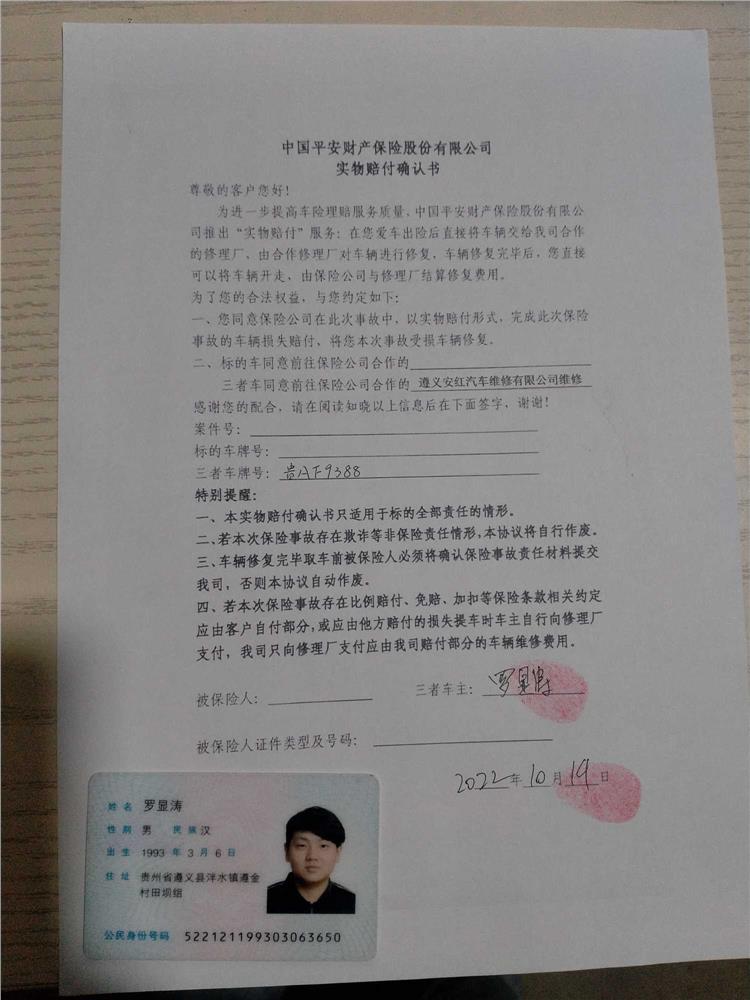 中国平安财产保险股份有限公司
实物赔付确认书
尊敬的客户您好！
为进一步提高车险理赔服务质量，中国平安财产保险股份有限公
司推出“实物赔付”服务：在您爱车出险后直接将车辆交给我司合作
的修理厂、由合作修理厂对车辆进行修复，车辆修复完毕后，您直接
可以将车辆开走、由保险公司与修理厂结算修复费用。
为了您的合法权益，与您约定如下：
一、您同意保险公司在此次事故中，以实物赔付形式，完成此次保险
事故的车辆损失赔付、将您本次事故受损车辆修复。
二、标的车同意前往保险公司合作的
三者车同意前往保险公司合作的 遵义安红汽车维修有限公司维修
感谢您的配合，请在阅读知晓以上信息后在下面签字，谢谢！
案件号：
标的车牌号：
三者车牌号：贵AF9388
特别提醒：
一、本实物赔付确认书只适用于标的全部责任的情形。
二、若本次保险事故存在欺诈等非保险责任情形，本协议将自行作废。
三、车辆修复完毕取车前被保险人必须将确认保险事故责任材料提交
我司，否则本协议自动作废。
四、若本次保险事故存在比例赔付、免赔、加扣等保险条款相关约定
应由客户自付部分，或应由他方赔付的损失提车时车主自行向修理厂
支付，我司只向修理厂支付应由我司赔付部分的车辆维修费用。
被保险人： 三者车主：罗显涛
被保险人证件类型及号码：
2022年10月19日
姓名 罗显涛
性别 男 民族 汉
出生 1993 年 3 月 6 日
住址 贵州省遵义县泮水镇遵金
村田坝组
公民身份号码 522121199303063650